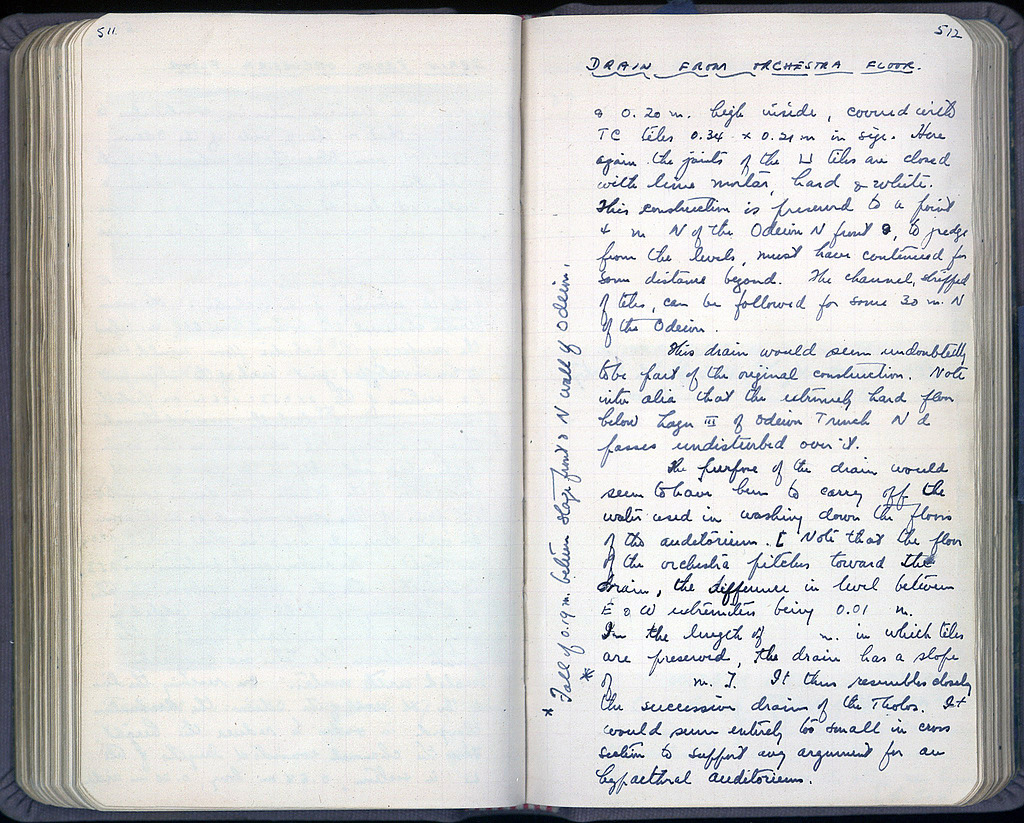 511
512
DRAIN FROM ORCHESTRA FLOOR.
& 0.20 m. high inside, covered with
TC tiles 0.34 x 0.21 m in size. Here
again the joints of the ⊔ tiles are closed
with lime mortar, hard & white.
This construction is preserved to a point
4 m N of the Odeion N front &, to judge
from the levels, must have continued for
some distance beyond. The channel, stripped
of tiles, can be followed for some 30 m. N
of the Odeion.
This drain would seem undoubtedly
to be part of the original construction. Note
inter alia that the extremely hard floor
below Layer III of Odeion Trench N d
passes undisturbed over it.
The purpose of the drain would
seem to have been to carry off the
water used in washing down the floors
of the auditorium. Note that the floor
of the orchestra pitches toward the
drain, the difference in level between
E & W extremities being 0.01 m.
In the length of m. in which tiles
are preserved, the drain has a slope
* of m. It thus resembles closely
the succession drains of the Tholos. It
would seem entirely too small in cross
section to support any argument for an
hypaethral auditorium.
* Fall of 0.19 m. between stage front & N wall of Odeion.